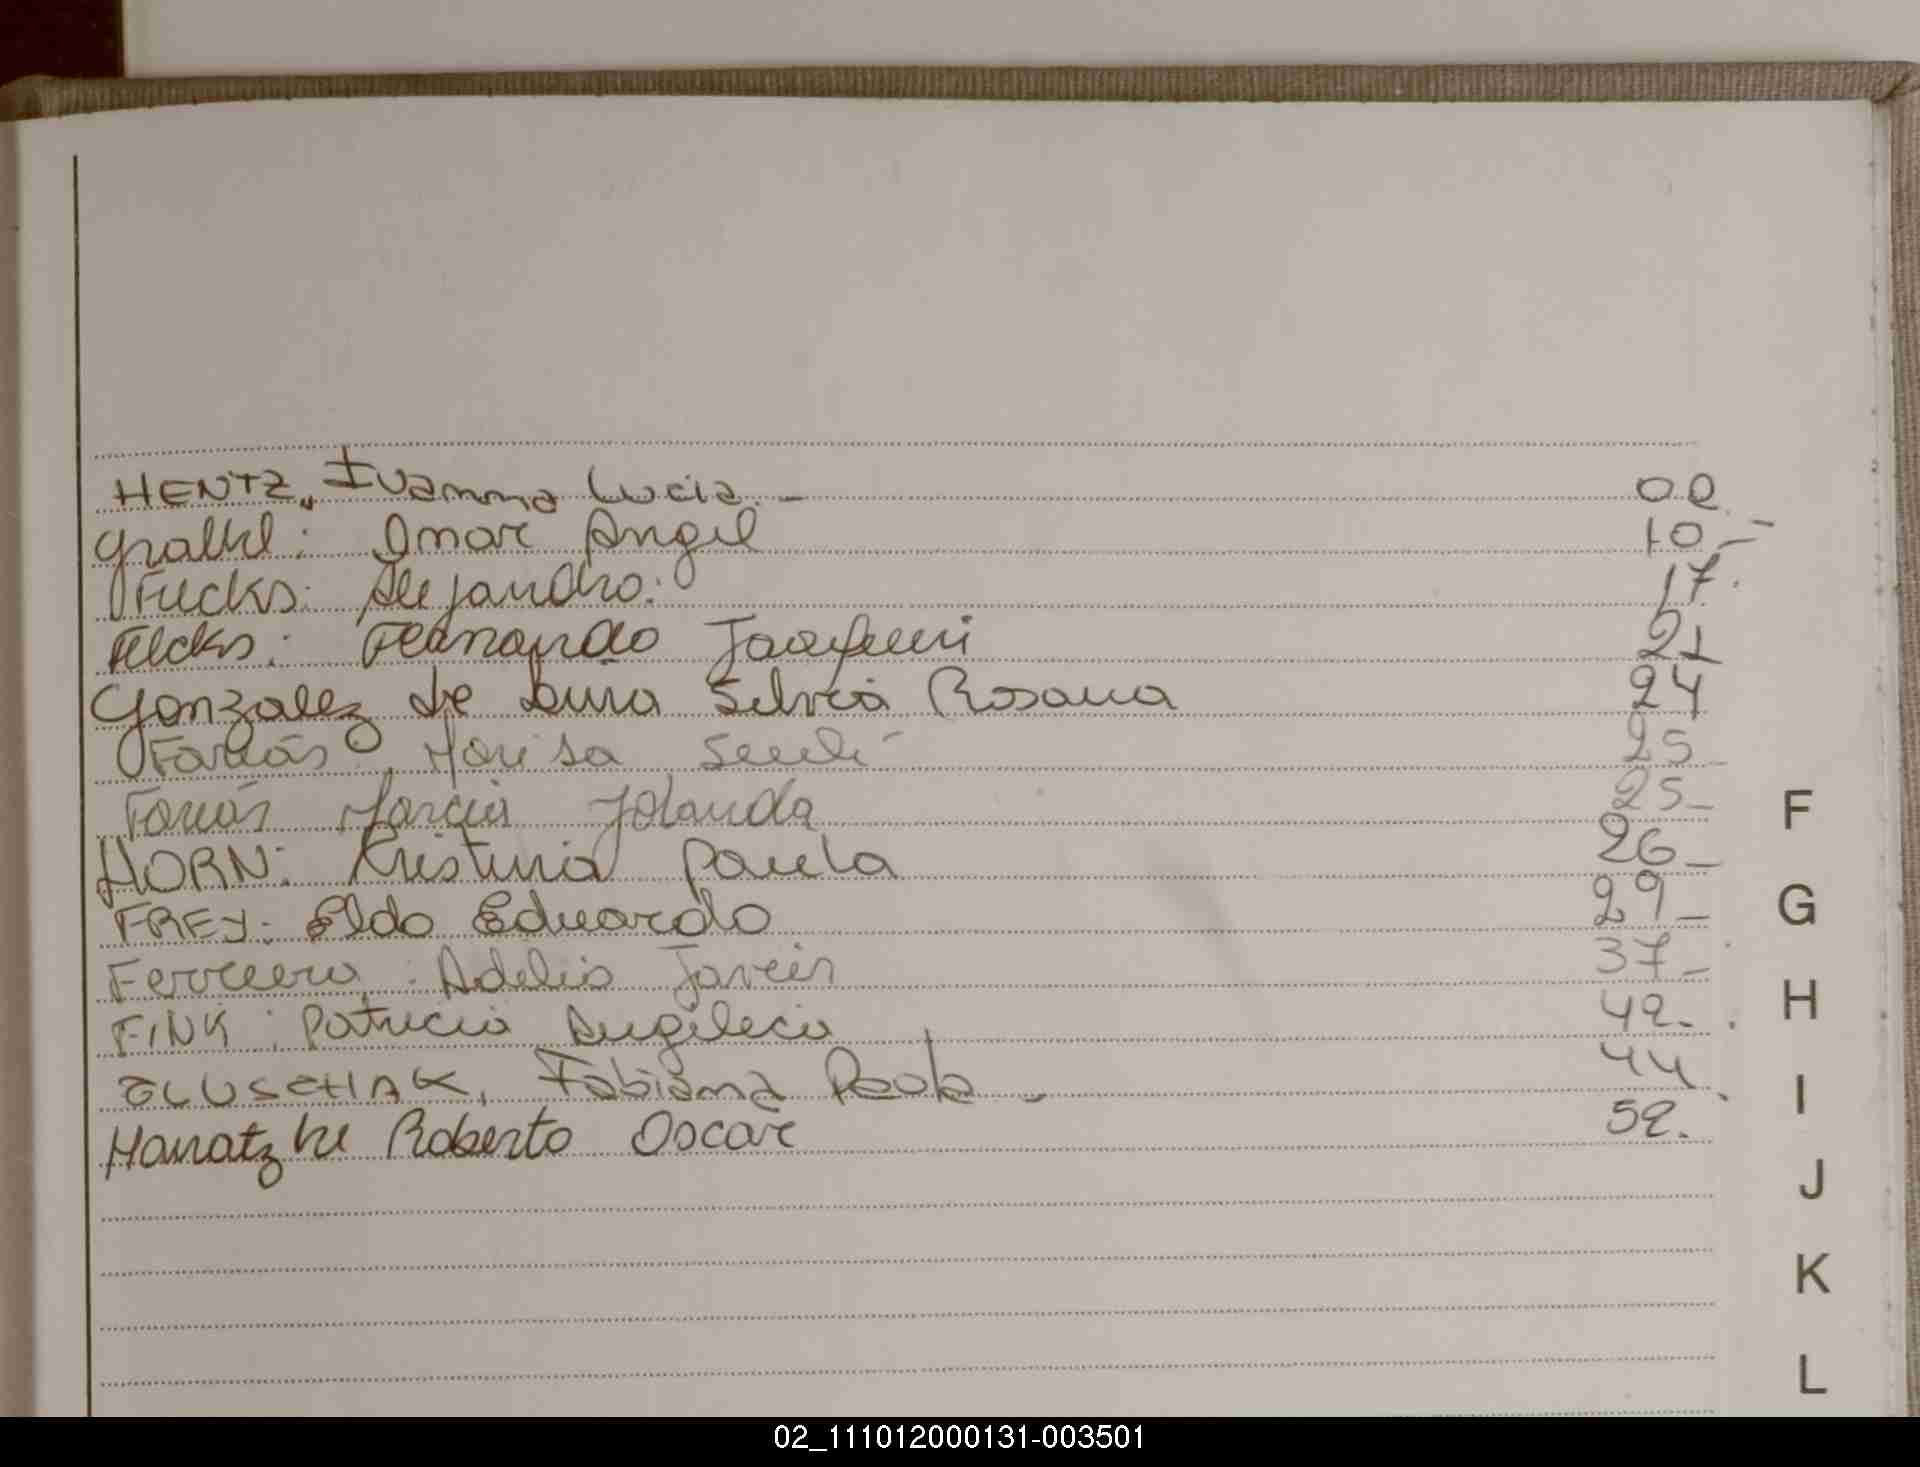 HENTZ, Ivanna Lucia.- 02.
Gralki: Omar Angel 10.-
Fucks: Alejandro. 17.
Fucks: Fernando Joaquin 21
Gonzalez de Silvia Rosana 24
Farías Marisa 25
Farías Marcia Yolanda 25-
HORN: Kristina Paula 26-
FREY: Eldo Eduardo 29-
Ferreero: Adelio Javier 37-
FINK: Patricia Angélica 42.
GLUSCHAK, Fabiana Paola.- 44.
Hanatzke Roberto Oscar 52.
F
G
H
I
J
K
L
02_111012000131-003501